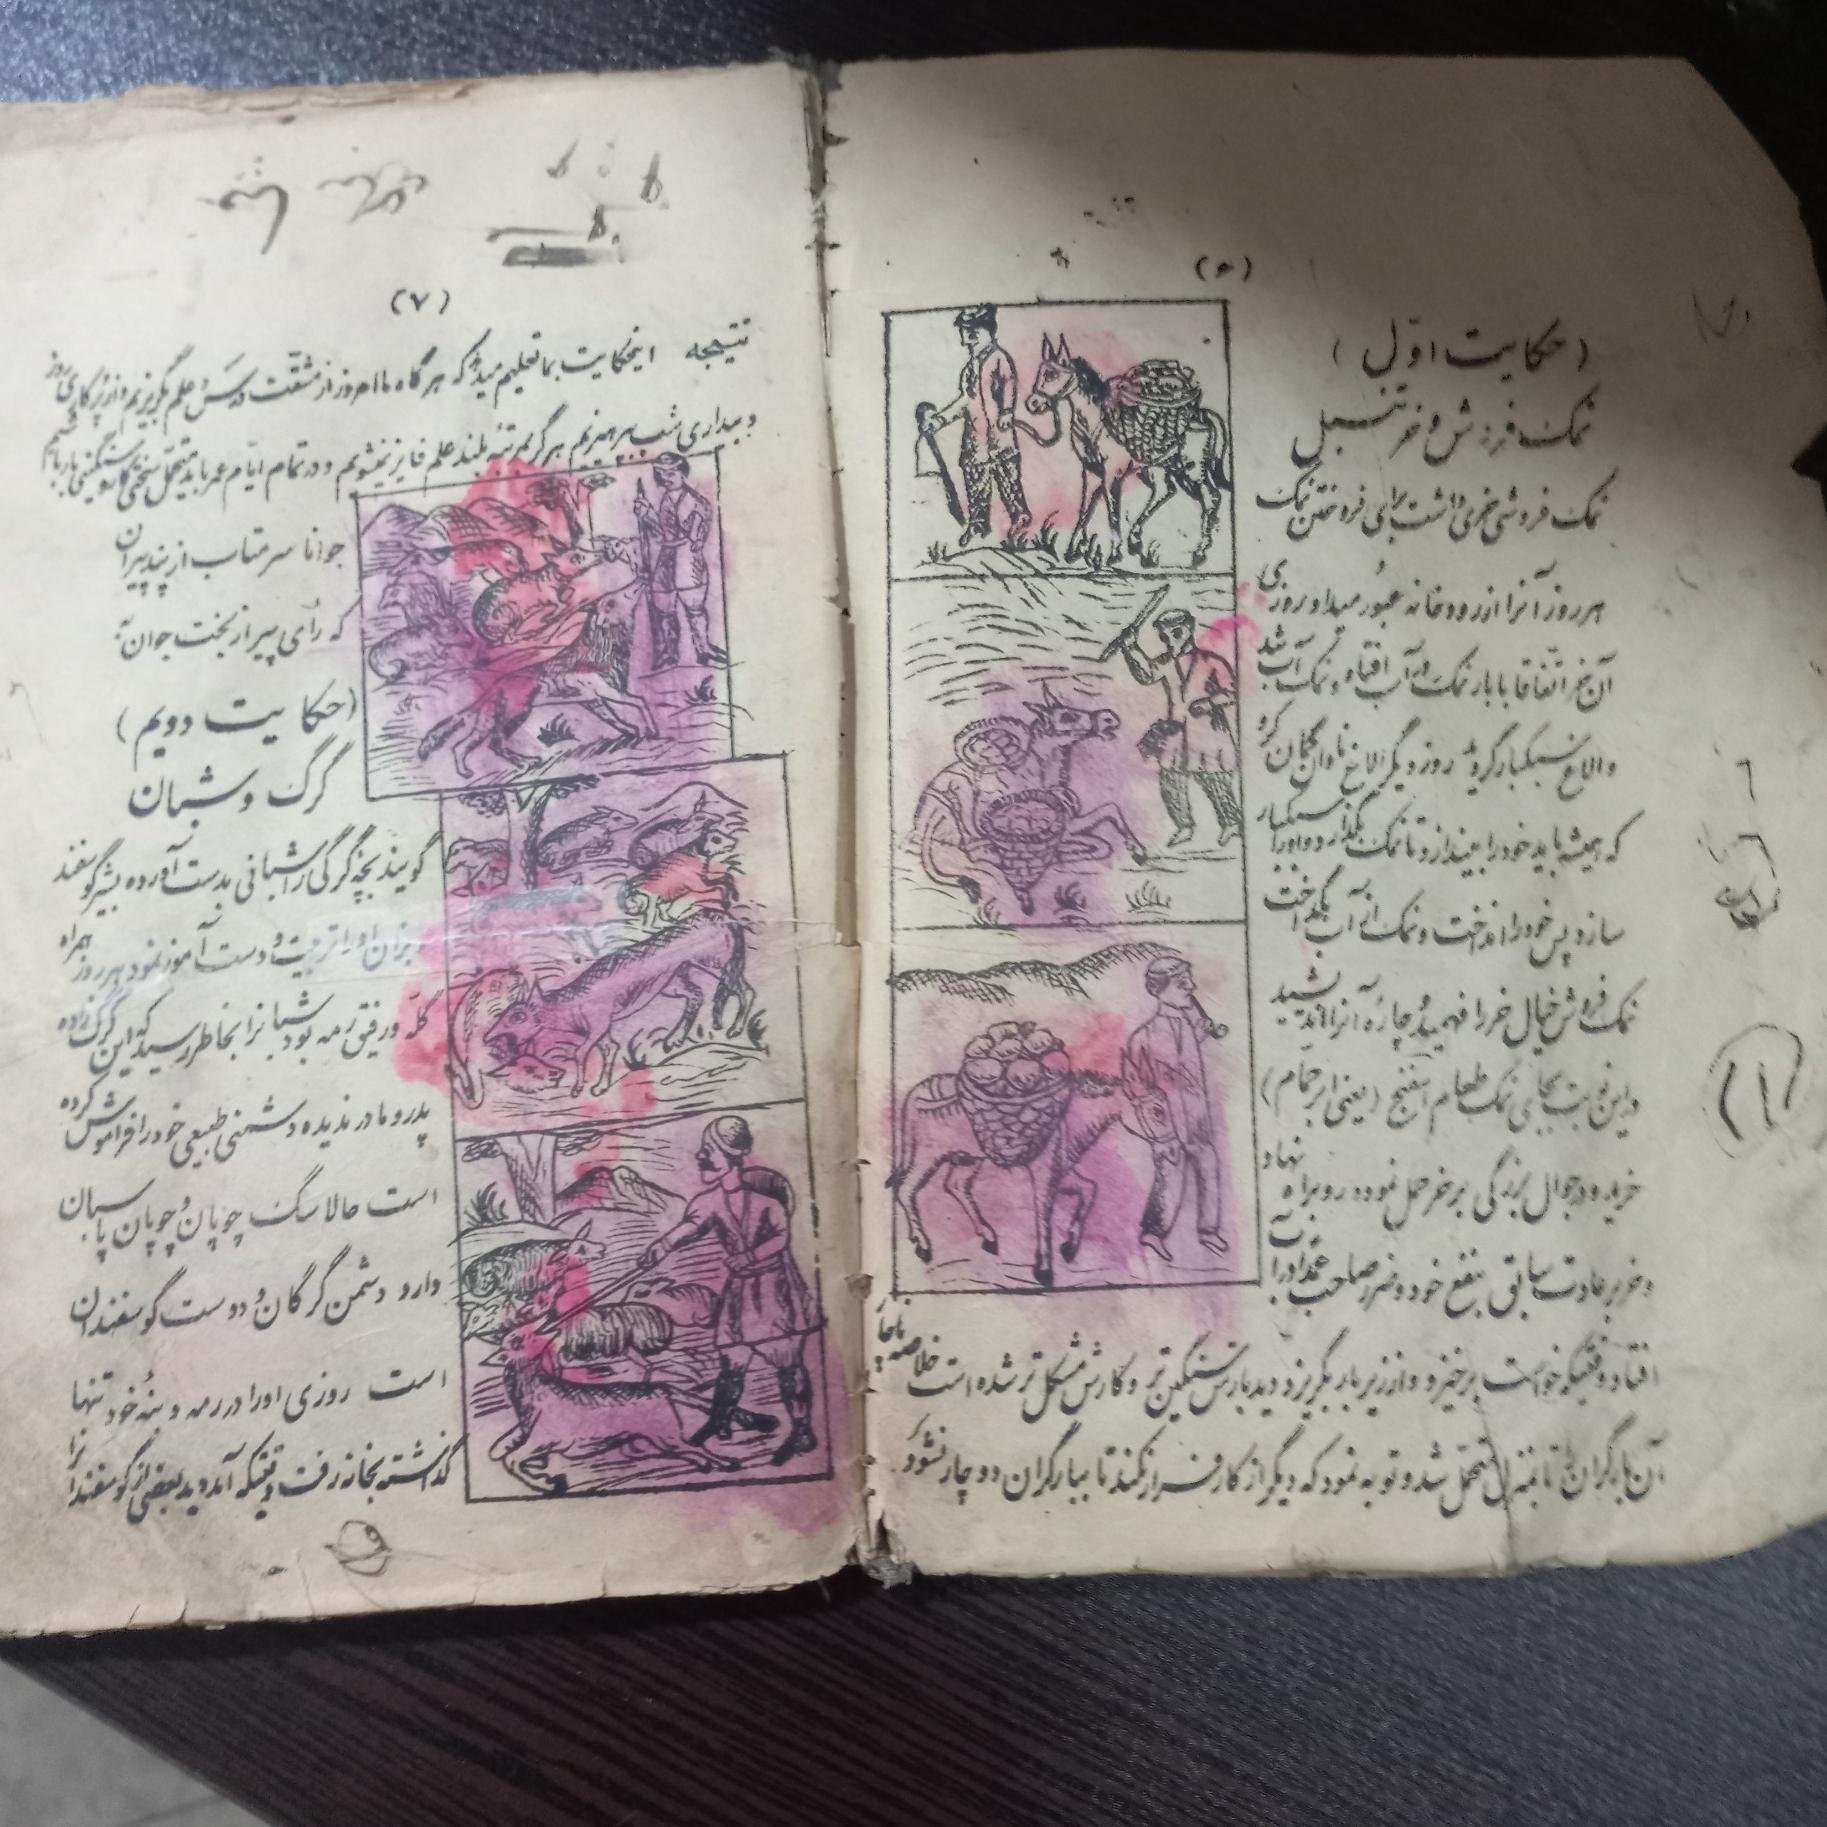 (۶)
(حکایت اوّل)
نمک فروش و خر تنبل
نمک فروشی خری داشت برای فروختن نمک
هر روز آنرا از رودخانه عبور میداد روزی
آن خر اتفاقا با بار نمک در آب افتاد و نمک آب شد
و الاغ سبکبار گردید روز دیگر الاغ نادان گمان کرد
که همیشه باید خود را بیندازد تا نمک بگدازد و او را سبکبار
سازد پس خود را انداخت و نمک از آب بگداخت
نمک فروش خیال خر را فهمید و چاره آنرا اندیشید
در این نوبت بجای نمک طعام اسفنج (یعنی ابر حمام)
خریده و در جوال بزرگی بر خر حمل نموده رو براه نهاد
و خر بر عادت سابق بنفع خود و ضرر صاحب عمدا در آب
افتاد وقتیکه خواست برخیزد و از زیر بار بگریزد دید بارش سنگین تر و کارش مشکل تر شده است خلاصه ناچار
آن بار گران را تا بمنزل متحمل شد و توبه نمود که دیگر از کار فرار نکند تا ببار گران دوچار نشود
(۷)
نتیجه اینحکایت بما تعلیم میدهد که هر گاه ما امروز از مشقت درس و علم بگریزیم و از پرکاری روز
و بیداری شب بپرهیزیم هرگز بمرتبه بلند علم فایز نمیشویم و در تمام ایام عمر باید متحمل سختی کار و سنگینی بار باشیم
جوانا سر متاب از پند پیران
که رأی پیر از بخت جوان به
(حکایت دویم)
گرگ و شبان
گویند بچه گرگی را شبانی بدست آورده بشیر گوسفند
و بزان او را تربیت و دست آموز نمود هر روز همراه
گله و رفیق رمه بود شبانرا بخاطر رسید که این گرگ زاده
پدر و مادر ندیده دشمنی طبیعی خود را فراموش کرده
است حالا سگ چوپان و چوپان پاسبان
دارد دشمن گرگان و دوست گوسفندان
است روزی او را در رمه و بنه خود تنها
گذاشته بخانه رفت وقتیکه آمد دید بعضی از گوسفندان را